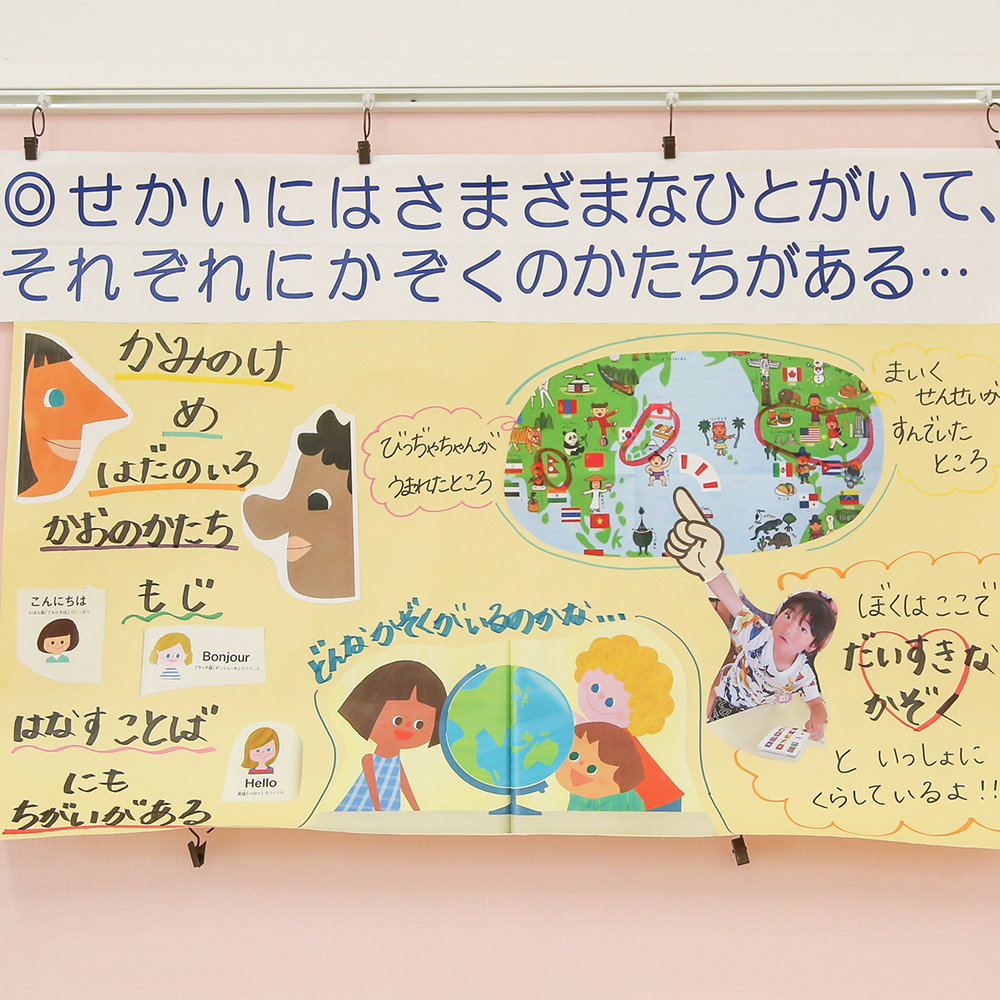 ◎せかいにはさまざまなひとがいて、
それぞれにかぞくのかたちがある…
かみのけ
め
はだのいろ
かおのかたち
もじ
こんにちは
Bonjour
はなすことば
Hello
にも
ちがいがある
びっぢゃちゃんが
うまれたところ
まいく
せんせいが
すんでいた
ところ
どんなかぞくがいるのかな…
ぼくはここで
だいすきな
かぞく
といっしょに
くらしているよ!!